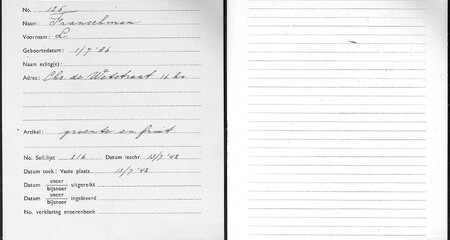 No. 125
Naam: Franschman
Voornaam: L.
Geboortedatum: 1/7 '06
Naam echtg(e).:
Adres: Chr de Wetstraat 16 hs
Artikel: groente en fruit
No. Soll.lijst 216 Datum inschr. 13/7 '42
Datum toek: Vaste plaats 13/7 '42
Datum snoer / bijsnoer uitgereikt
Datum snoer / bijsnoer ingeleverd
No. verklaring snoerenboek